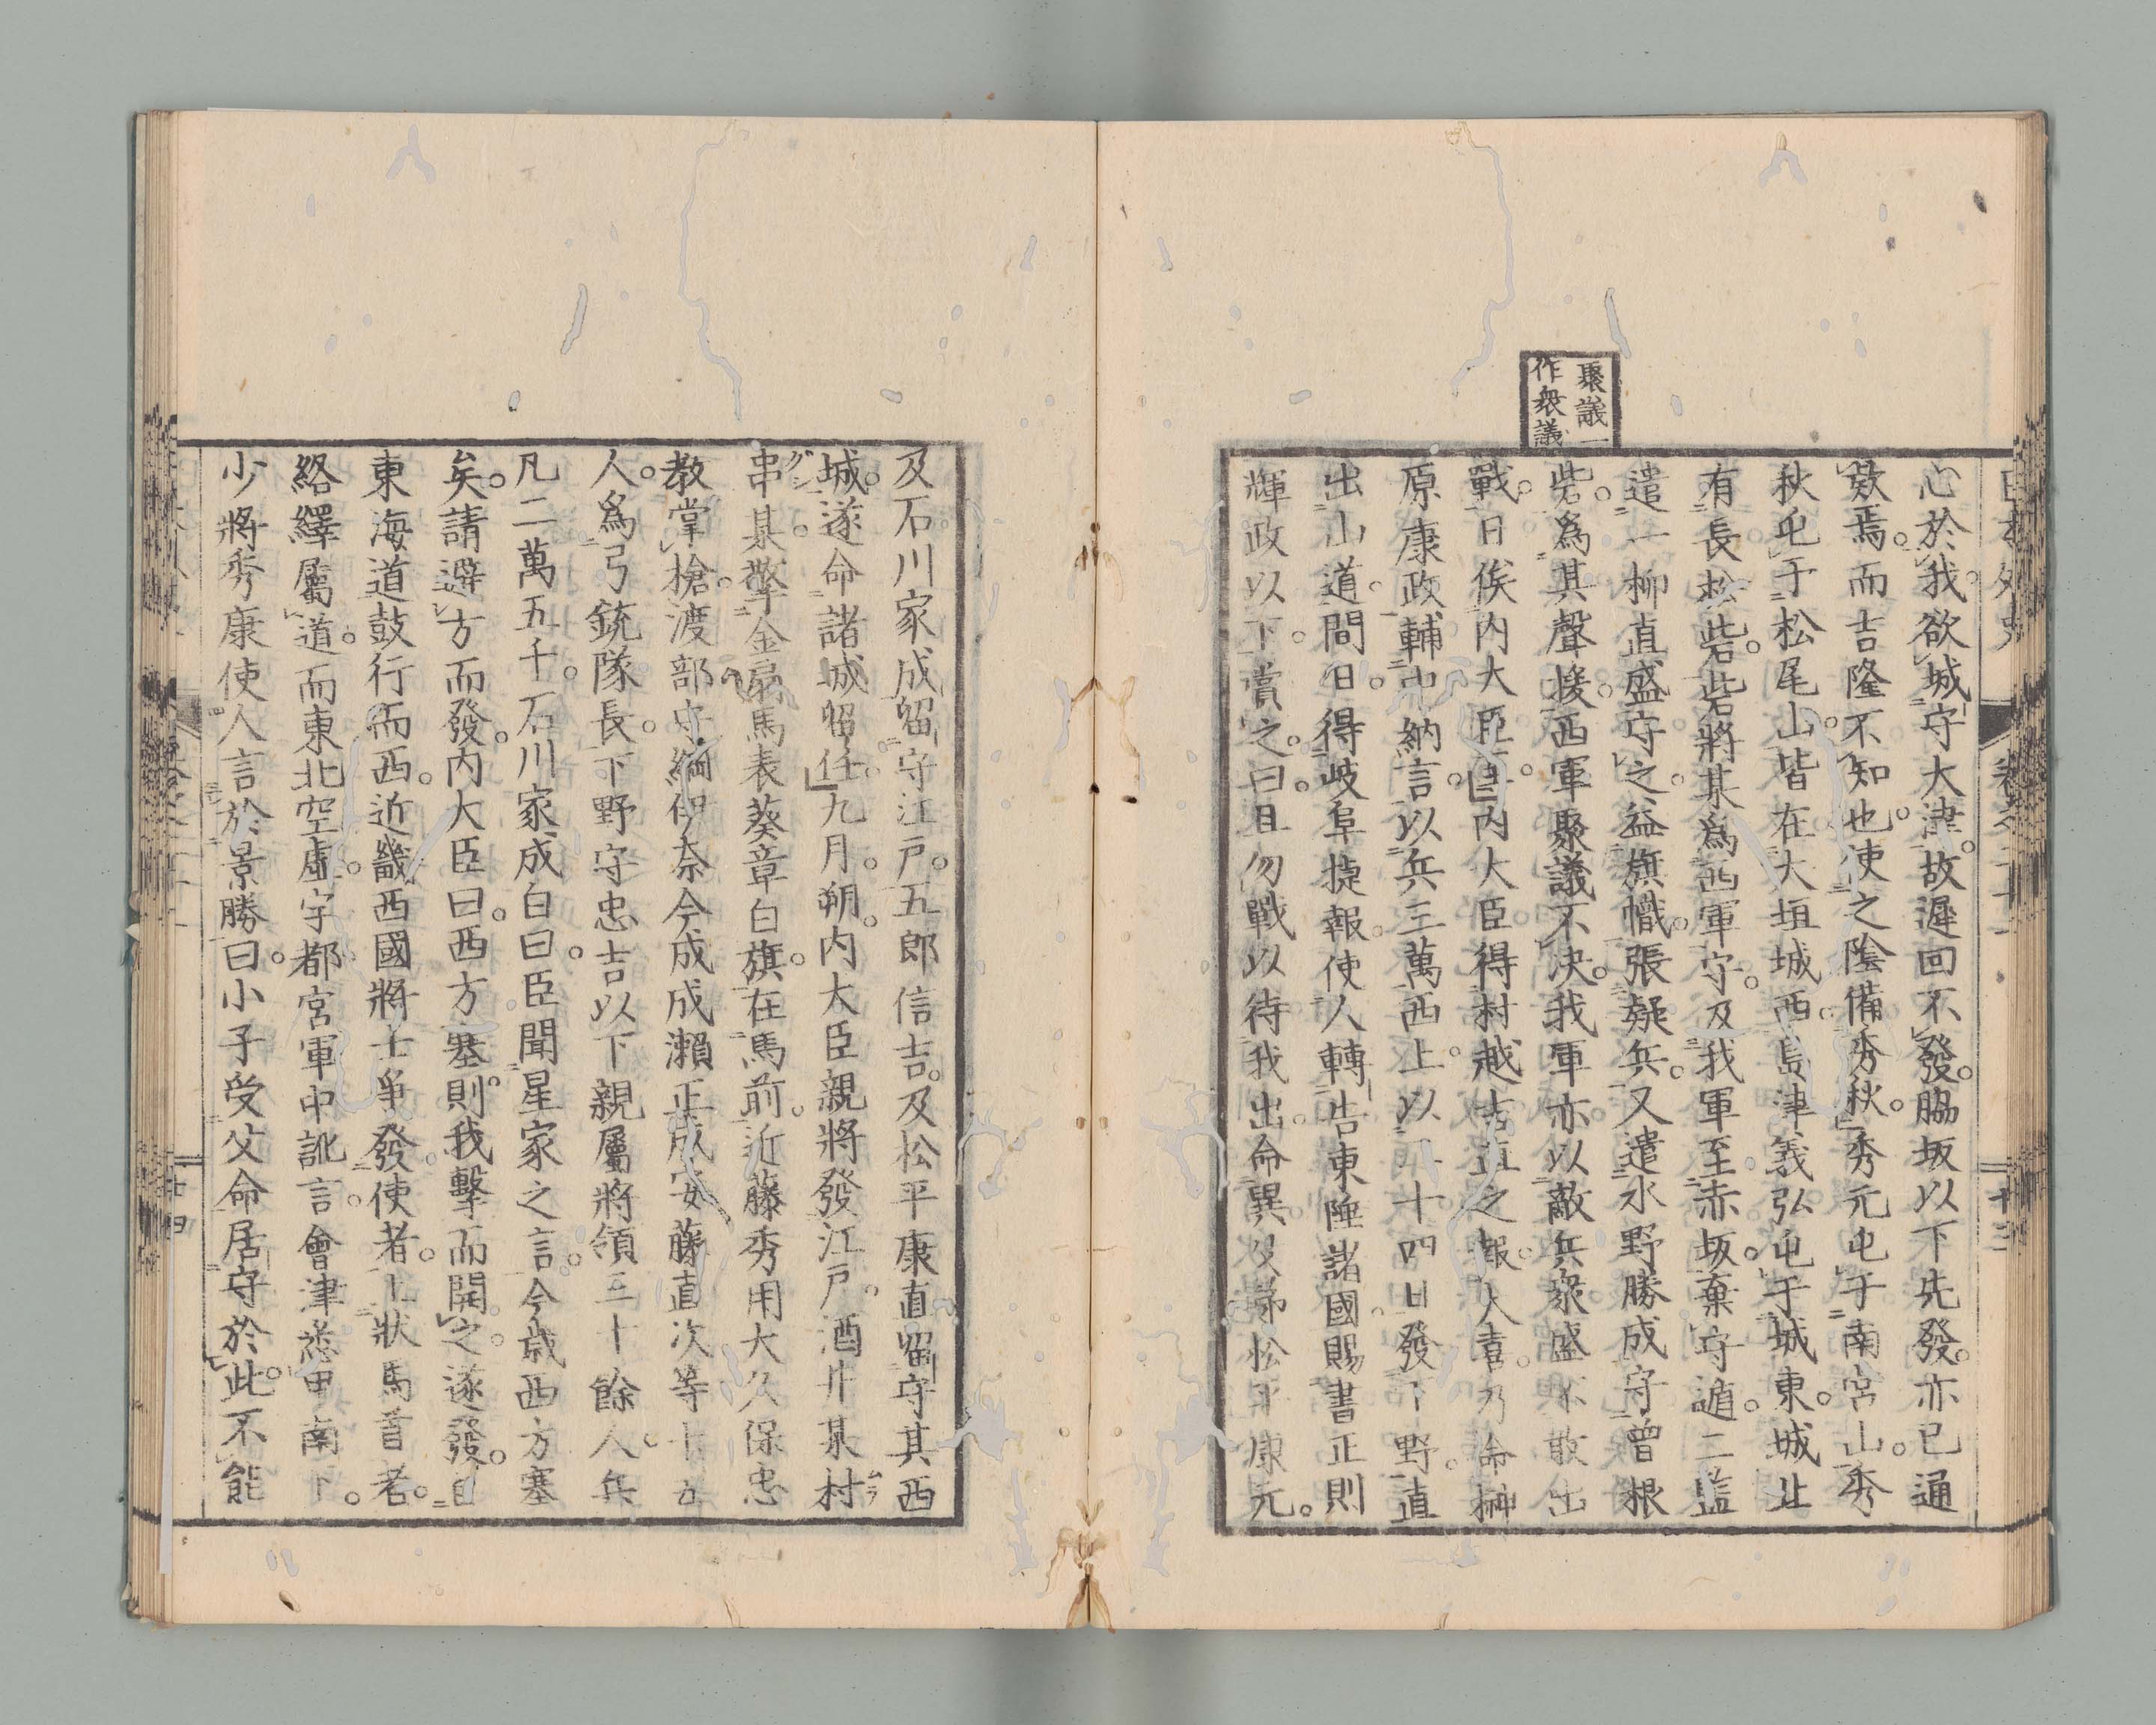 聚議一
作衆議
心於我。欲城守大津。故遲回不發。脇坂以下先發。亦已通
款焉。而吉隆不知也。使之陰備秀秋。秀元屯于南宮山。秀
秋屯于松尾山。皆在大垣城西。島津義弘屯于城東。城北
有長松砦。砦將某爲西軍守。及我軍至赤坂。棄守遁。二監
遣一柳直盛守之。益旗幟。張疑兵。又遣水野勝成守曾根
砦。爲其聲援。西軍聚議不決。我軍亦以敵兵衆盛不敢出
戰。日俟内大臣至。内大臣得村越吉直之報。大喜。乃命榊
原康政輔中納言。以兵三萬西上。以二十四日發下野。直
出山道。間日。得岐阜捷報。使人轉告東陲諸國。賜書正則
輝政以下賞之。曰。且勿戰以待我出。命異父弟松平康元。
及石川家成留守江戸。五郎信吉。及松平康直留守其西
城。遂命諸城留任。九月朔。内大臣親將發江戸。酒井某村
串某擎金扇馬表葵章白旗。在馬前。近藤秀用大久保忠
教掌槍。渡部守綱伊奈今成成瀬正成安藤直次等十五
人。爲弓銃隊長。下野守忠吉以下親屬將領三十餘人。兵
凡二萬五千。石川家成白曰。臣聞星家之言。今歳西方塞
矣。請避方而發。内大臣曰。西方塞。則我擊而開之。遂發。自
東海道鼓行而西。近畿西國將士爭發使者。上狀馬首者。
絡繹屬道。而東北空虛。宇都宮軍中訛言。會津悉甲南下。
少將秀康使人言於景勝曰。小子受父命居守於此。不能